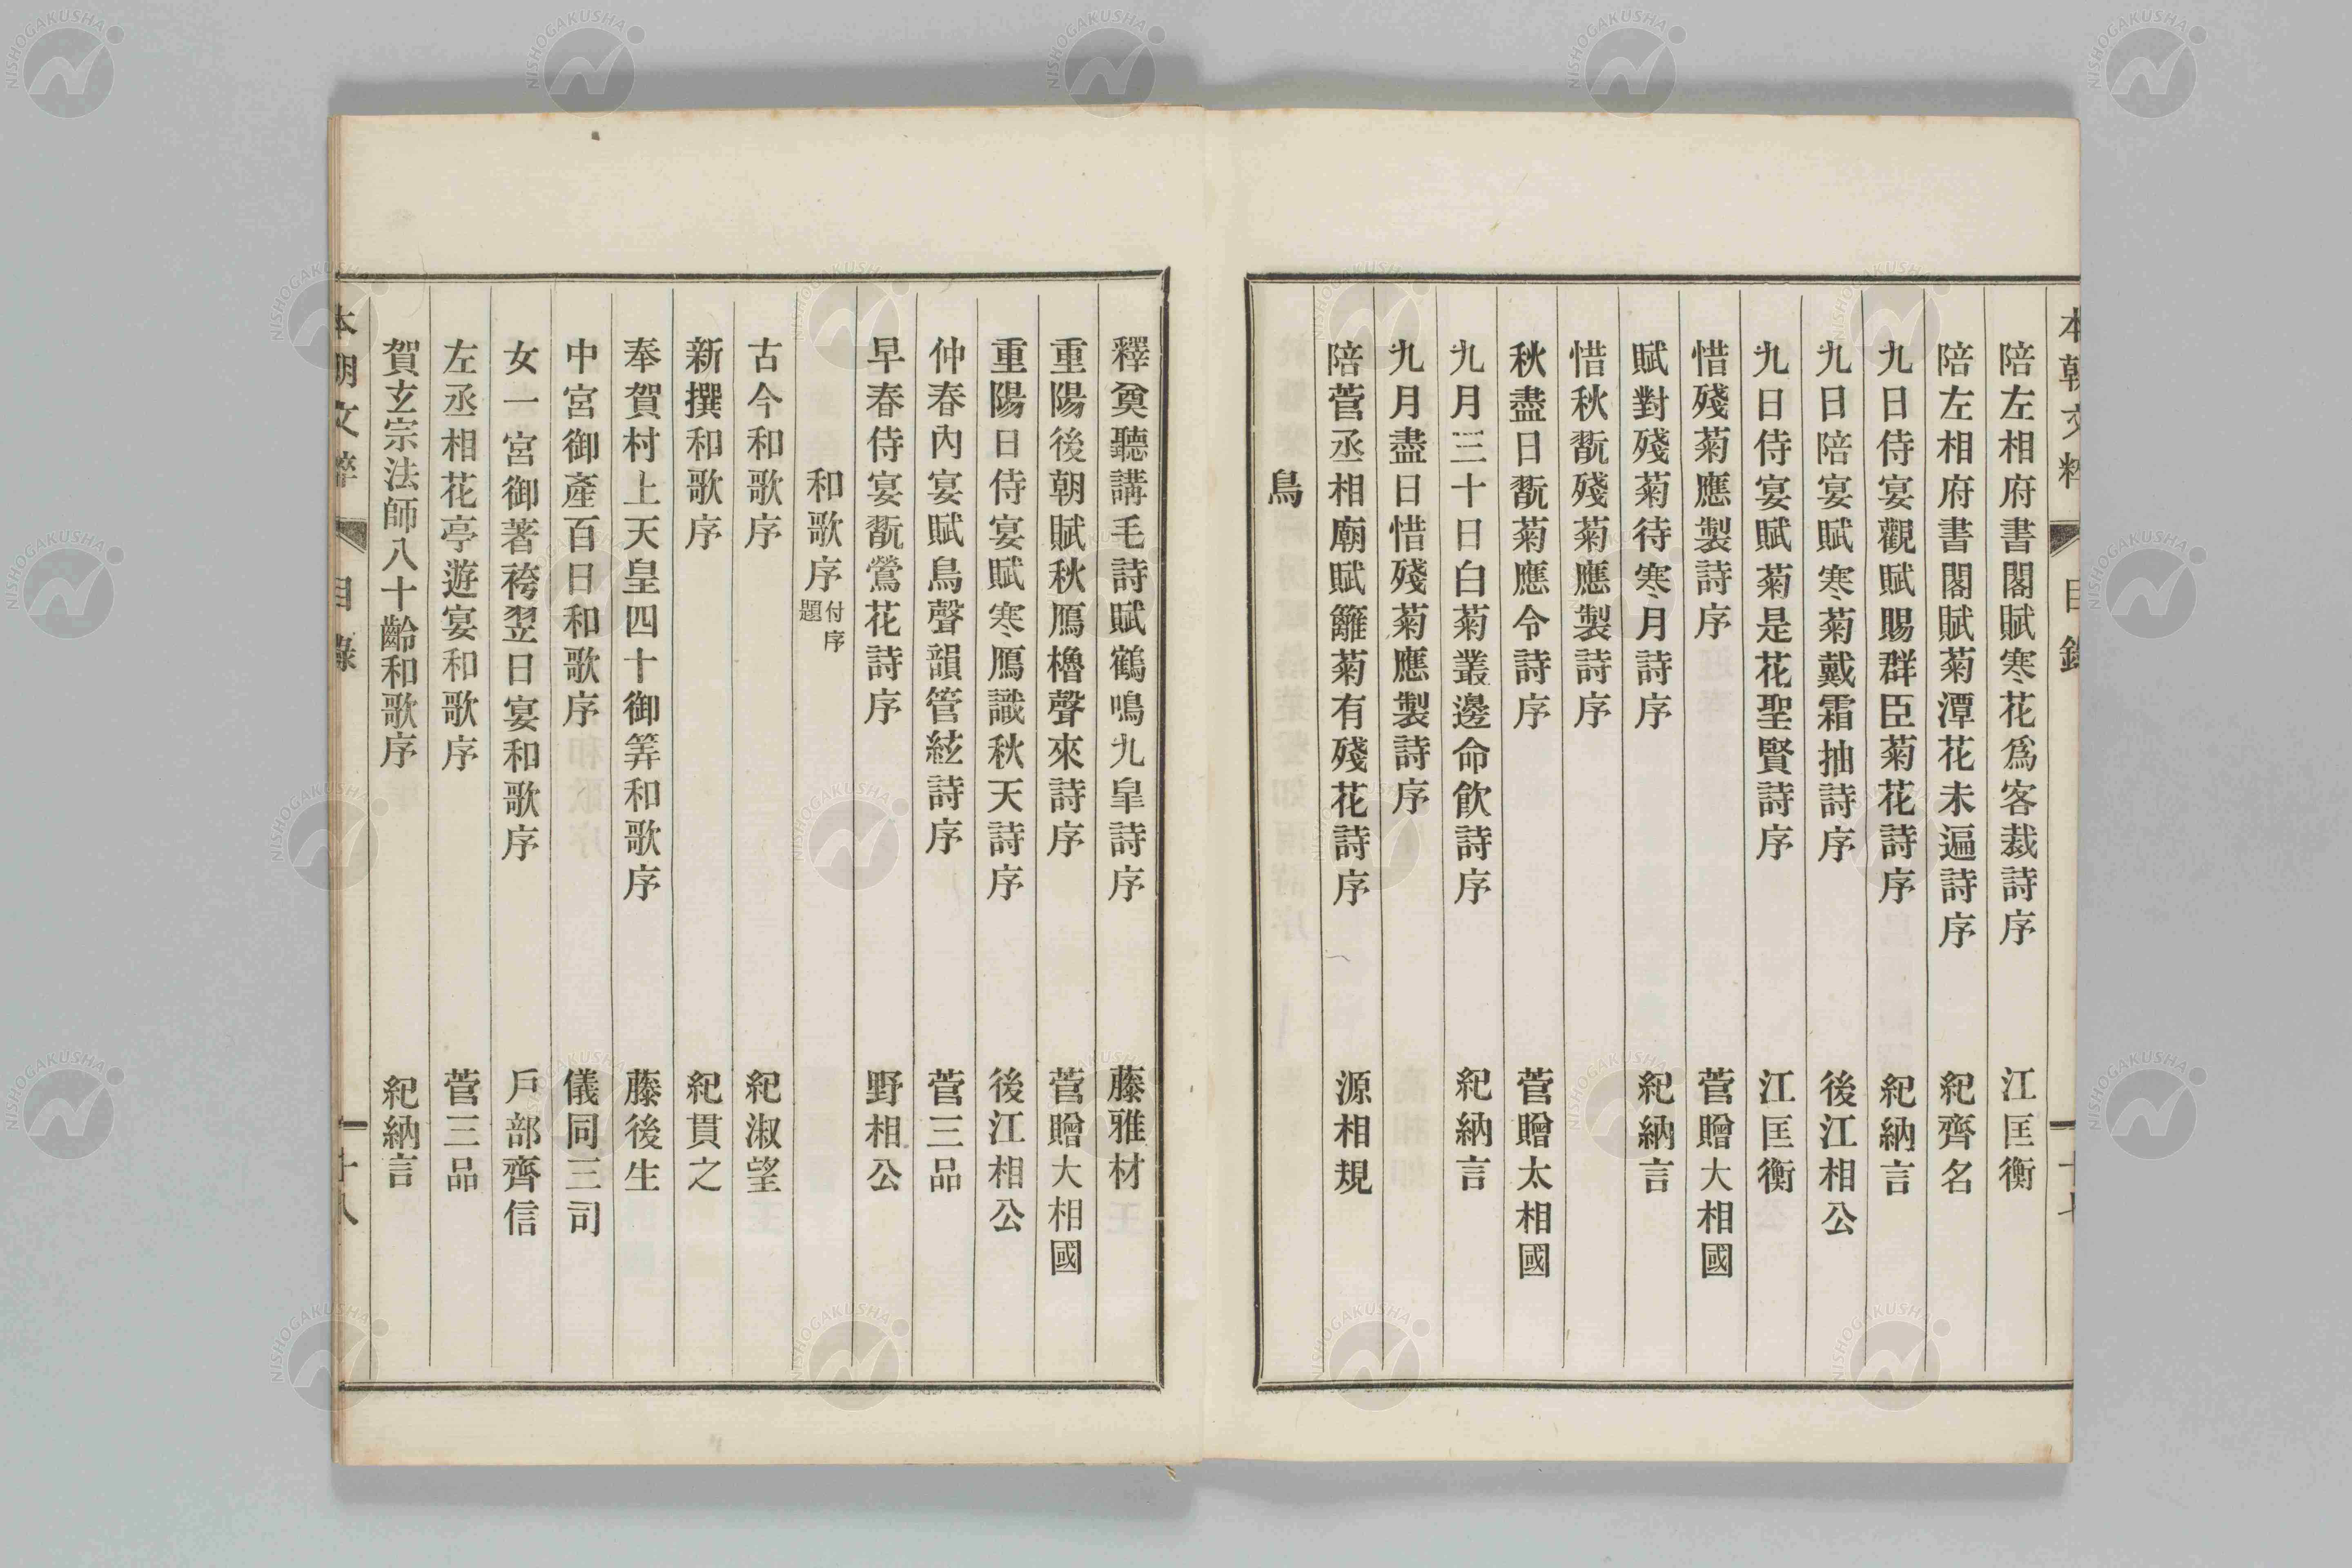 本朝文粹 目錄
陪左相府書閣賦寒花爲客裁詩序 江匡衡
陪左相府書閣賦菊潭花未遍詩序 紀齊名
九日侍宴觀賦賜群臣菊花詩序 紀納言
九日陪宴賦寒菊戴霜抽詩序 後江相公
九日侍宴賦菊是花聖賢詩序 江匡衡
惜殘菊應製詩序 菅贈大相國
賦對殘菊待寒月詩序 紀納言
惜秋翫殘菊應製詩序
秋盡日翫菊應令詩序 菅贈太相國
九月三十日白菊叢邊命飮詩序 紀納言
九月盡日惜殘菊應製詩序
陪菅丞相廟賦籬菊有殘花詩序 源相規
鳥
釋奠聽講毛詩賦鶴鳴九皐詩序 藤雅材
重陽後朝賦秋鴈櫓聲來詩序 菅贈大相國
重陽日侍宴賦寒鴈識秋天詩序 後江相公
仲春內宴賦鳥聲韻管絃詩序 菅三品
早春侍宴翫鶯花詩序 野相公
和歌序 付序題
古今和歌序 紀淑望
新撰和歌序 紀貫之
奉賀村上天皇四十御筭和歌序 藤後生
中宮御產百日和歌序 儀同三司
女一宮御著袴翌日宴和歌序 戶部齊信
左丞相花亭遊宴和歌序 菅三品
賀玄宗法師八十齡和歌序 紀納言
本朝文粹 目錄 十八
NISHOGAKUSHA